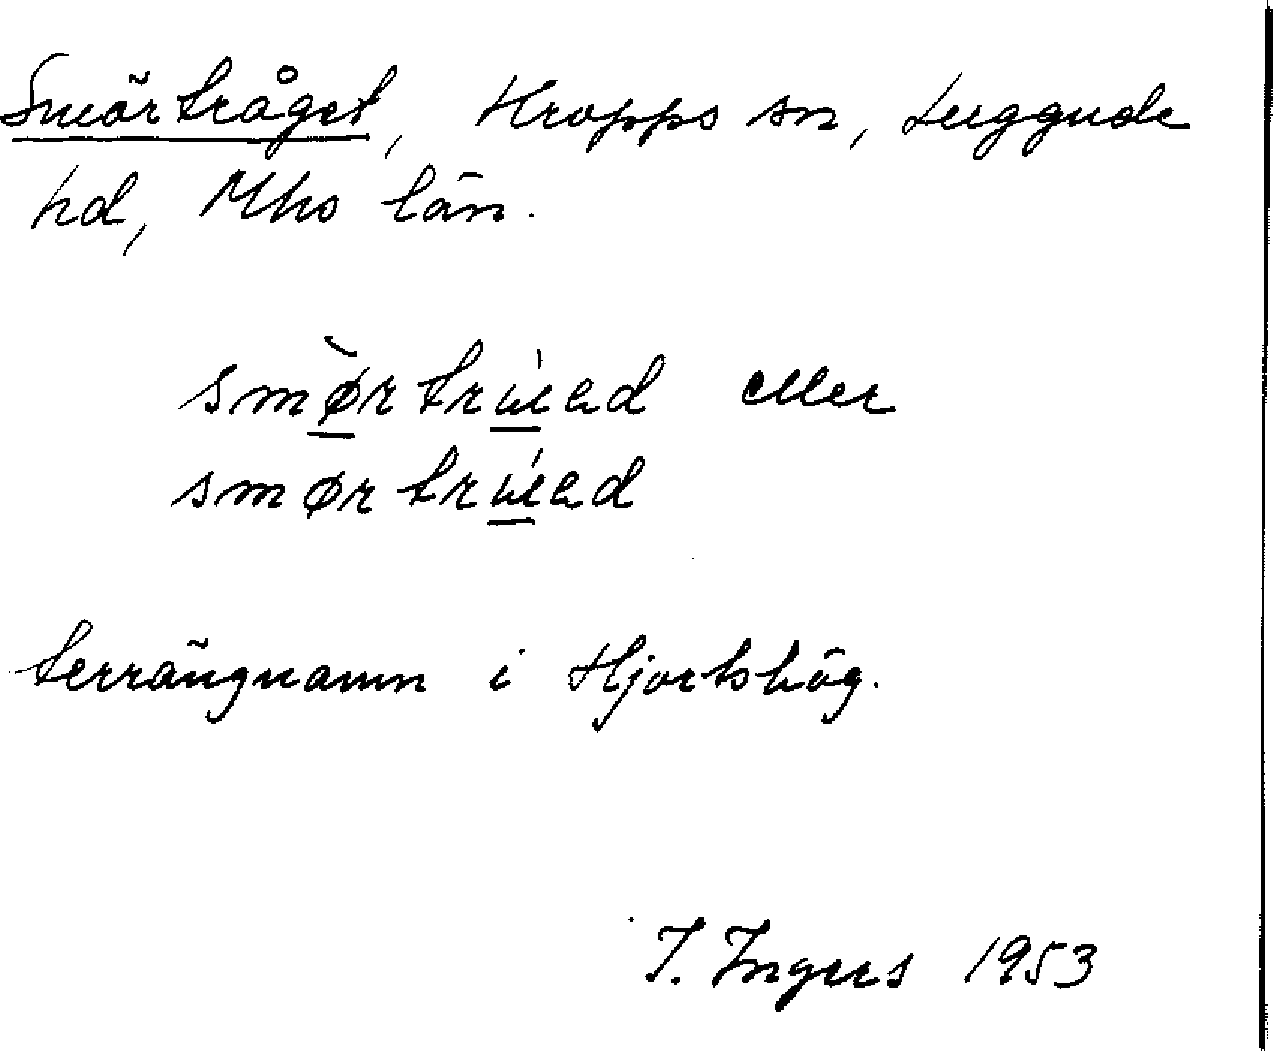 Smörtråget, Kropps sn, Luggude
hd, Mhs län.
eller
terrängnamn i Hjortshög.
I. Ingers 1953